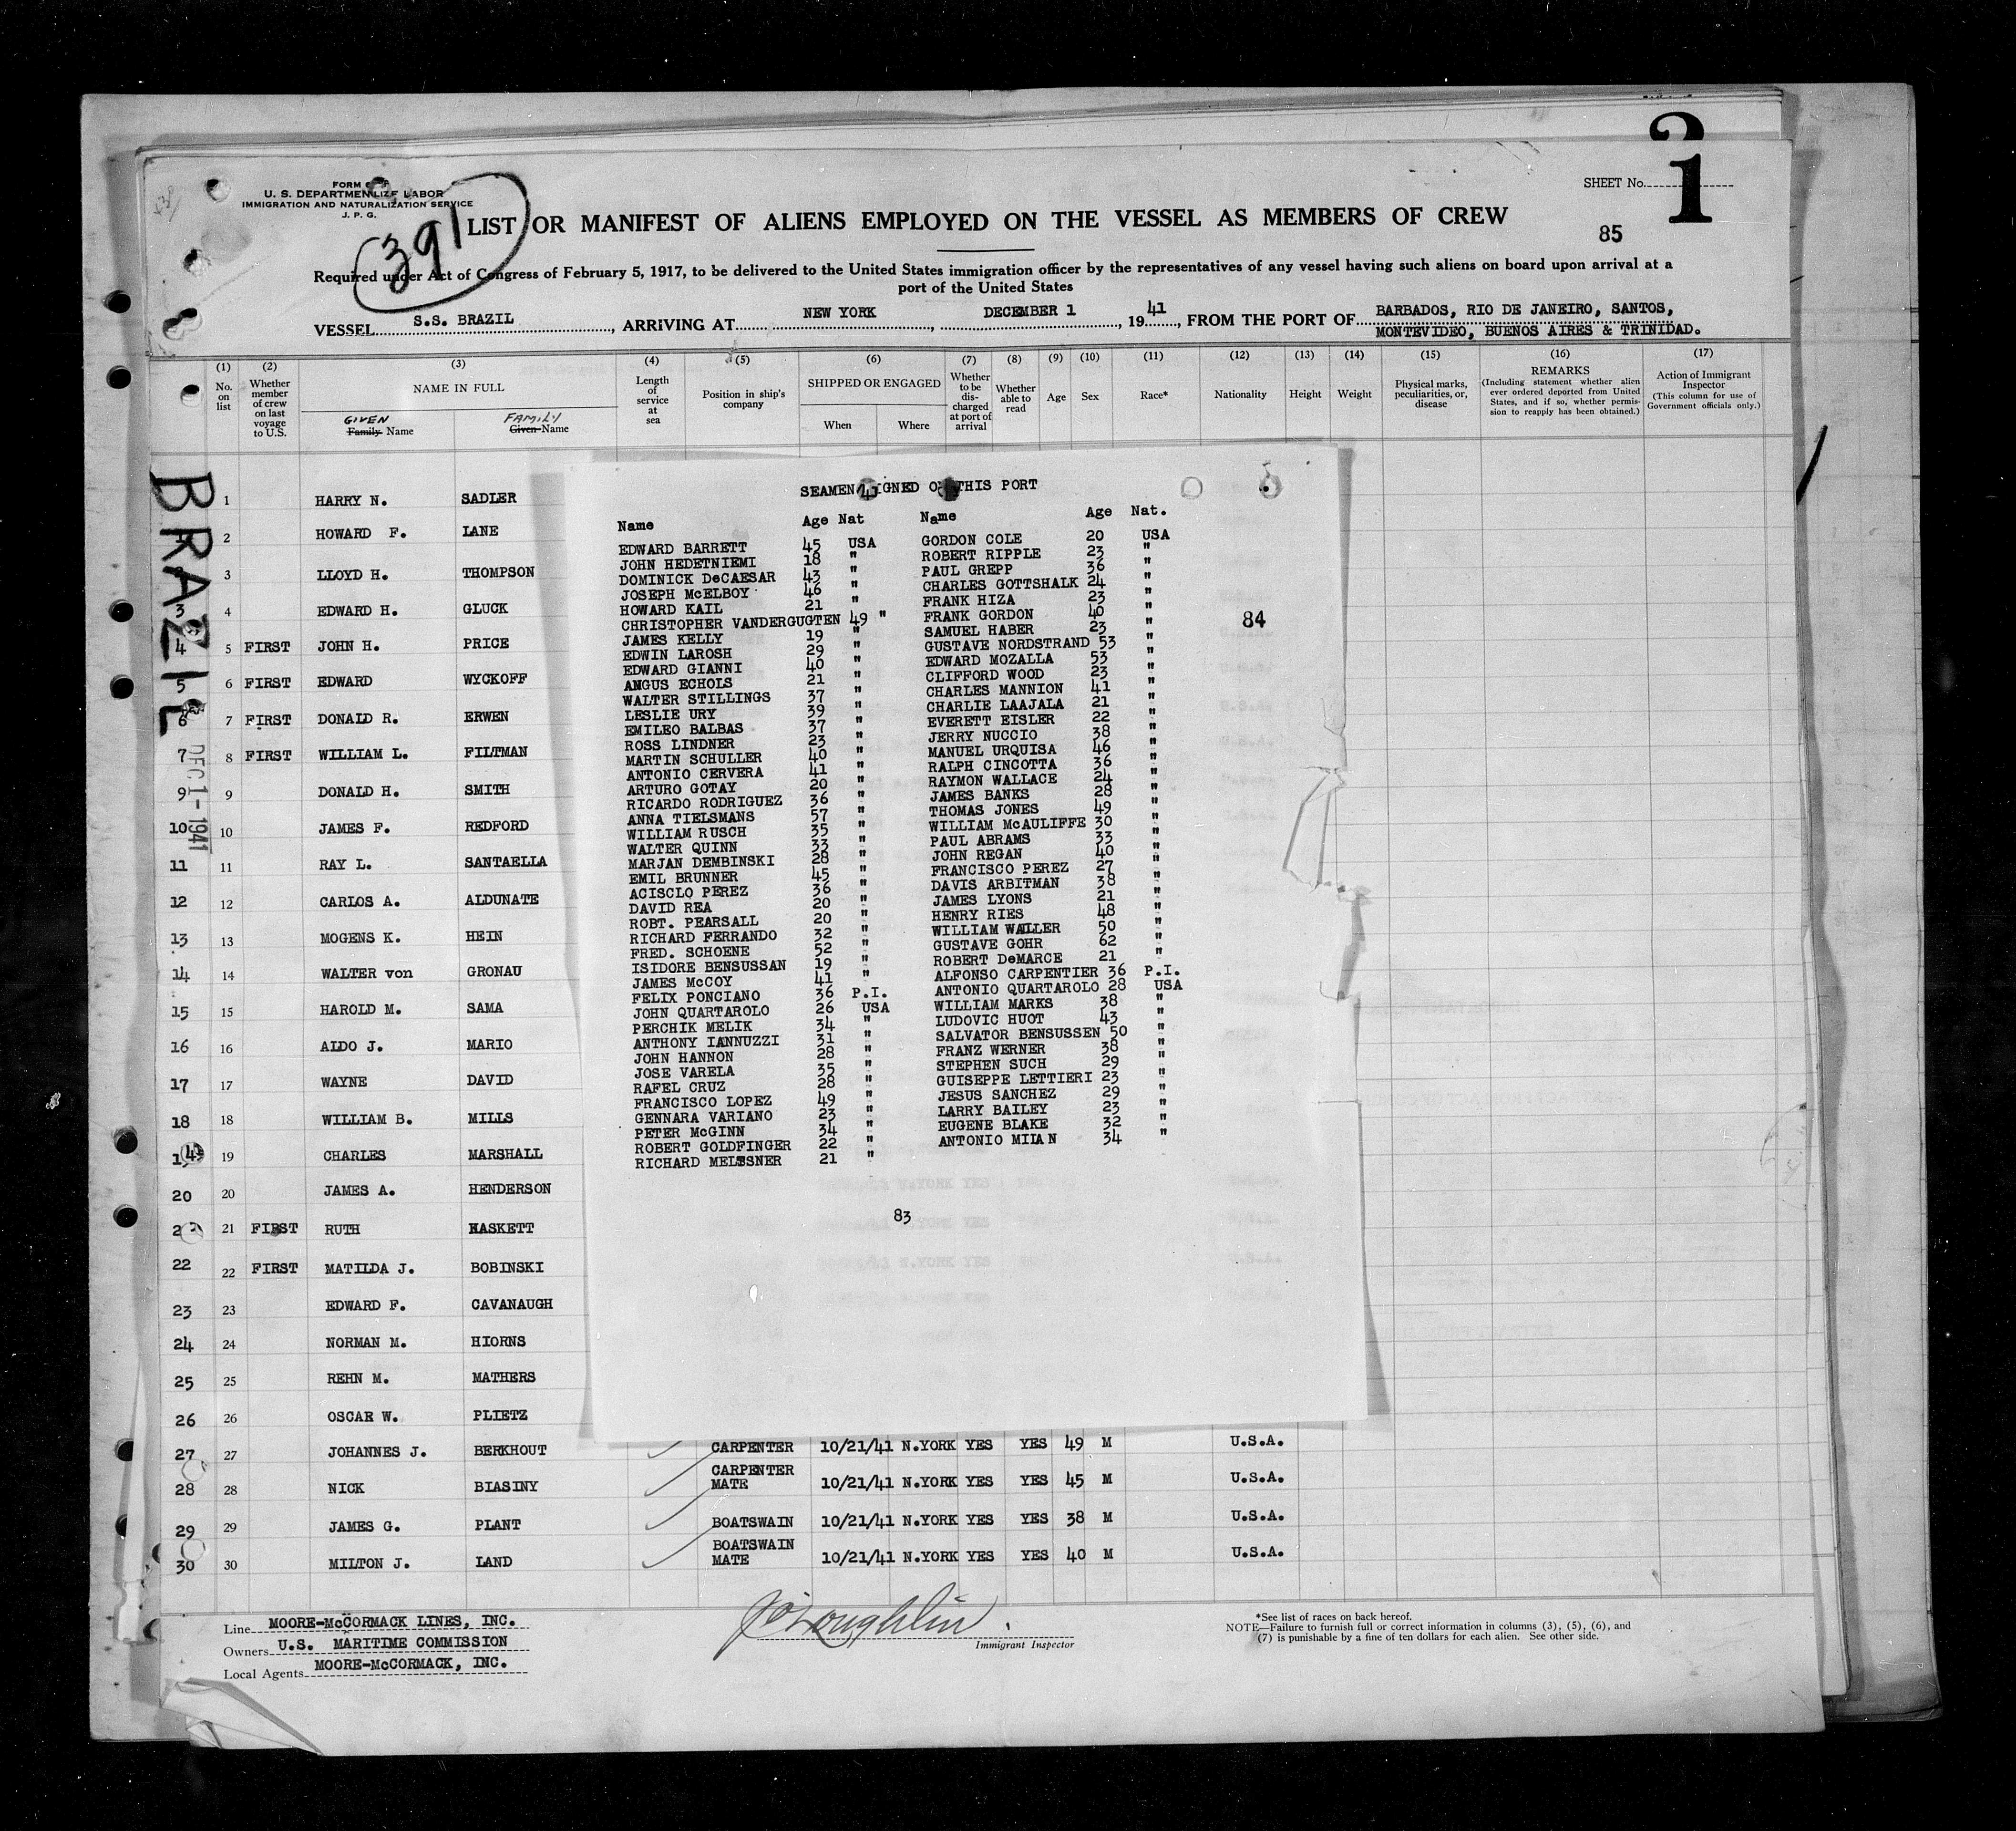 SHEET No.
1
FORM
U. S. DEPARTMENT LABOR
IMMIGRATION AND NATURALIZATION SERVICE
J. P. G.
391
LIST OR MANIFEST OF ALIENS EMPLOYED ON THE VESSEL AS MEMBERS OF CREW
85
Required under Act of Congress of February 5, 1917, to be delivered to the United States immigration officer by the representatives of any vessel having such aliens on board upon arrival at a
port of the United States
VESSEL S.S. BRAZIL, ARRIVING AT NEW YORK, DECEMBER 1, 1941, FROM THE PORT OF BARBADOS, RIO DE JANEIRO, SANTOS,
MONTEVIDEO, BUENOS AIRES & TRINIDAD.
(1) No. on list
(2) Whether member of crew on last voyage to U.S.
(3) NAME IN FULL
GIVEN Family Name
FAMILY Given Name
(4) Length of service at sea
(5) Position in ship's company
(6) SHIPPED OR ENGAGED
When Where
(7) Whether to be dis-charged at port of arrival
(8) Whether able to read
(9) Age
(10) Sex
(11) Race*
(12) Nationality
(13) Height
(14) Weight
(15) Physical marks, peculiarities, or, disease
(16) REMARKS (Including statement whether alien ever ordered deported from United States, and if so, whether permis-sion to reapply has been obtained.)
(17) Action of Immigrant Inspector (This column for use of Government officials only.)
BRAZIL
DEC 1 - 1941
1 HARRY N. SADLER
2 HOWARD F. LANE
3 LLOYD H. THOMPSON
3 4 EDWARD H. GLUCK
4 5 FIRST JOHN H. PRICE
5 6 FIRST EDWARD WYCKOFF
6 7 FIRST DONALD R. ERWEN
7 8 FIRST WILLIAM L. FILTMAN
9 9 DONALD H. SMITH
10 10 JAMES F. REDFORD
11 11 RAY L. SANTAELLA
12 12 CARLOS A. ALDUNATE
13 13 MOGENS K. HEIN
14 14 WALTER von GRONAU
15 15 HAROLD M. SAMA
16 16 ALDO J. MARIO
17 17 WAYNE DAVID
18 18 WILLIAM B. MILLS
19 CHARLES MARSHALL
20 20 JAMES A. HENDERSON
21 FIRST RUTH HASKETT
22 22 FIRST MATILDA J. BOBINSKI
23 23 EDWARD F. CAVANAUGH
24 24 NORMAN M. HIORNS
25 25 REHN M. MATHERS
26 26 OSCAR W. PLIETZ
27 27 JOHANNES J. BERKHOUT CARPENTER 10/21/41 N.YORK YES YES 49 M U.S.A.
28 28 NICK BIASINY CARPENTER MATE 10/21/41 N.YORK YES YES 45 M U.S.A.
29 29 JAMES G. PLANT BOATSWAIN 10/21/41 N.YORK YES YES 38 M U.S.A.
30 30 MILTON J. LAND BOATSWAIN MATE 10/21/41 N.YORK YES YES 40 M U.S.A.
SEAMEN SIGNED ON THIS PORT
Name Age Nat
EDWARD BARRETT 45 USA
JOHN HEDETNIEMI 18 "
DOMINICK DeCAESAR 43 "
JOSEPH McELBOY 46 "
HOWARD KAIL 21 "
CHRISTOPHER VANDERGUGTEN 49 "
JAMES KELLY 19 "
EDWIN LAROSH 29 "
EDWARD GIANNI 40 "
ANGUS ECHOLS 21 "
WALTER STILLINGS 37 "
LESLIE URY 39 "
EMILEO BALBAS 37 "
ROSS LINDNER 23 "
MARTIN SCHULLER 40 "
ANTONIO CERVERA 41 "
ARTURO GOTAY 20 "
RICARDO RODRIGUEZ 36 "
ANNA TIELSMANS 57 "
WILLIAM RUSCH 35 "
WALTER QUINN 33 "
MARJAN DEMBINSKI 28 "
EMIL BRUNNER 45 "
ACISCLO PEREZ 36 "
DAVID REA 20 "
ROBT. PEARSALL 20 "
RICHARD FERRANDO 32 "
FRED. SCHOENE 52 "
ISIDORE BENSUSSAN 19 "
JAMES McCOY 41 "
FELIX PONCIANO 36 P.I.
JOHN QUARTAROLO 26 USA
PERCHIK MELIK 34 "
ANTHONY IANNUZZI 31 "
JOHN HANNON 28 "
JOSE VARELA 35 "
RAFEL CRUZ 28 "
FRANCISCO LOPEZ 49 "
GENNARA VARIANO 23 "
PETER McGINN 34 "
ROBERT GOLDFINGER 22 "
RICHARD MELSSNER 21 "
Name Age Nat.
GORDON COLE 20 USA
ROBERT RIPPLE 23 "
PAUL GREPP 36 "
CHARLES GOTTSHALK 24 "
FRANK HIZA 23 "
FRANK GORDON 40 "
SAMUEL HABER 23 "
GUSTAVE NORDSTRAND 53 "
EDWARD MOZALLA 53 "
CLIFFORD WOOD 23 "
CHARLES MANNION 41 "
CHARLIE LAAJALA 21 "
EVERETT EISLER 22 "
JERRY NUCCIO 38 "
MANUEL URQUISA 46 "
RALPH CINCOTTA 36 "
RAYMON WALLACE 24 "
JAMES BANKS 28 "
THOMAS JONES 49 "
WILLIAM McAULIFFE 30 "
PAUL ABRAMS 33 "
JOHN REGAN 40 "
FRANCISCO PEREZ 27 "
DAVIS ARBITMAN 38 "
JAMES LYONS 21 "
HENRY RIES 48 "
WILLIAM WALLER 50 "
GUSTAVE GOHR 62 "
ROBERT DeMARCE 21 "
ALFONSO CARPENTIER 36 P.I.
ANTONIO QUARTAROLO 28 USA
WILLIAM MARKS 38 "
LUDOVIC HUOT 43 "
SALVATOR BENSUSSEN 50 "
FRANZ WERNER 38 "
STEPHEN SUCH 29 "
GUISEPPE LETTIERI 23 "
JESUS SANCHEZ 29 "
LARRY BAILEY 23 "
EUGENE BLAKE 32 "
ANTONIO MILAN 34 "
84
83
Line MOORE-McCORMACK LINES, INC.
Owners U.S. MARITIME COMMISSION
Local Agents MOORE-McCORMACK, INC.
Immigrant Inspector
*See list of races on back hereof.
NOTE—Failure to furnish full or correct information in columns (3), (5), (6), and
(7) is punishable by a fine of ten dollars for each alien. See other side.